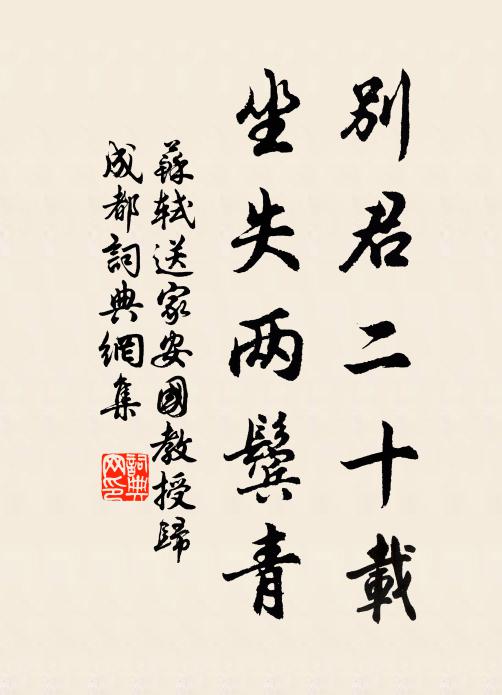 別君二十載
坐失两鬓青
蘇軾送家安國教授歸
成都詞典網集
詞典网印